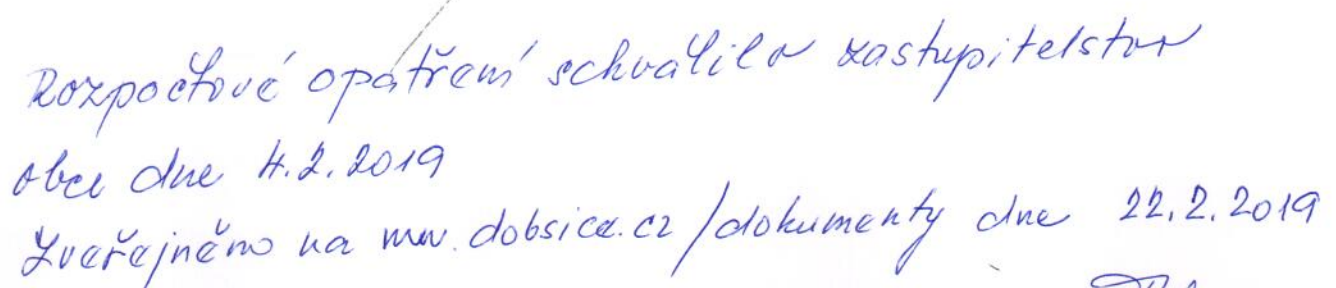 Rozpočtové opatření schválilo zastupitelstvo
obce dne 4.2.2019
Zveřejněno na www.dobsice.cz/dokumenty dne 22.2.2019